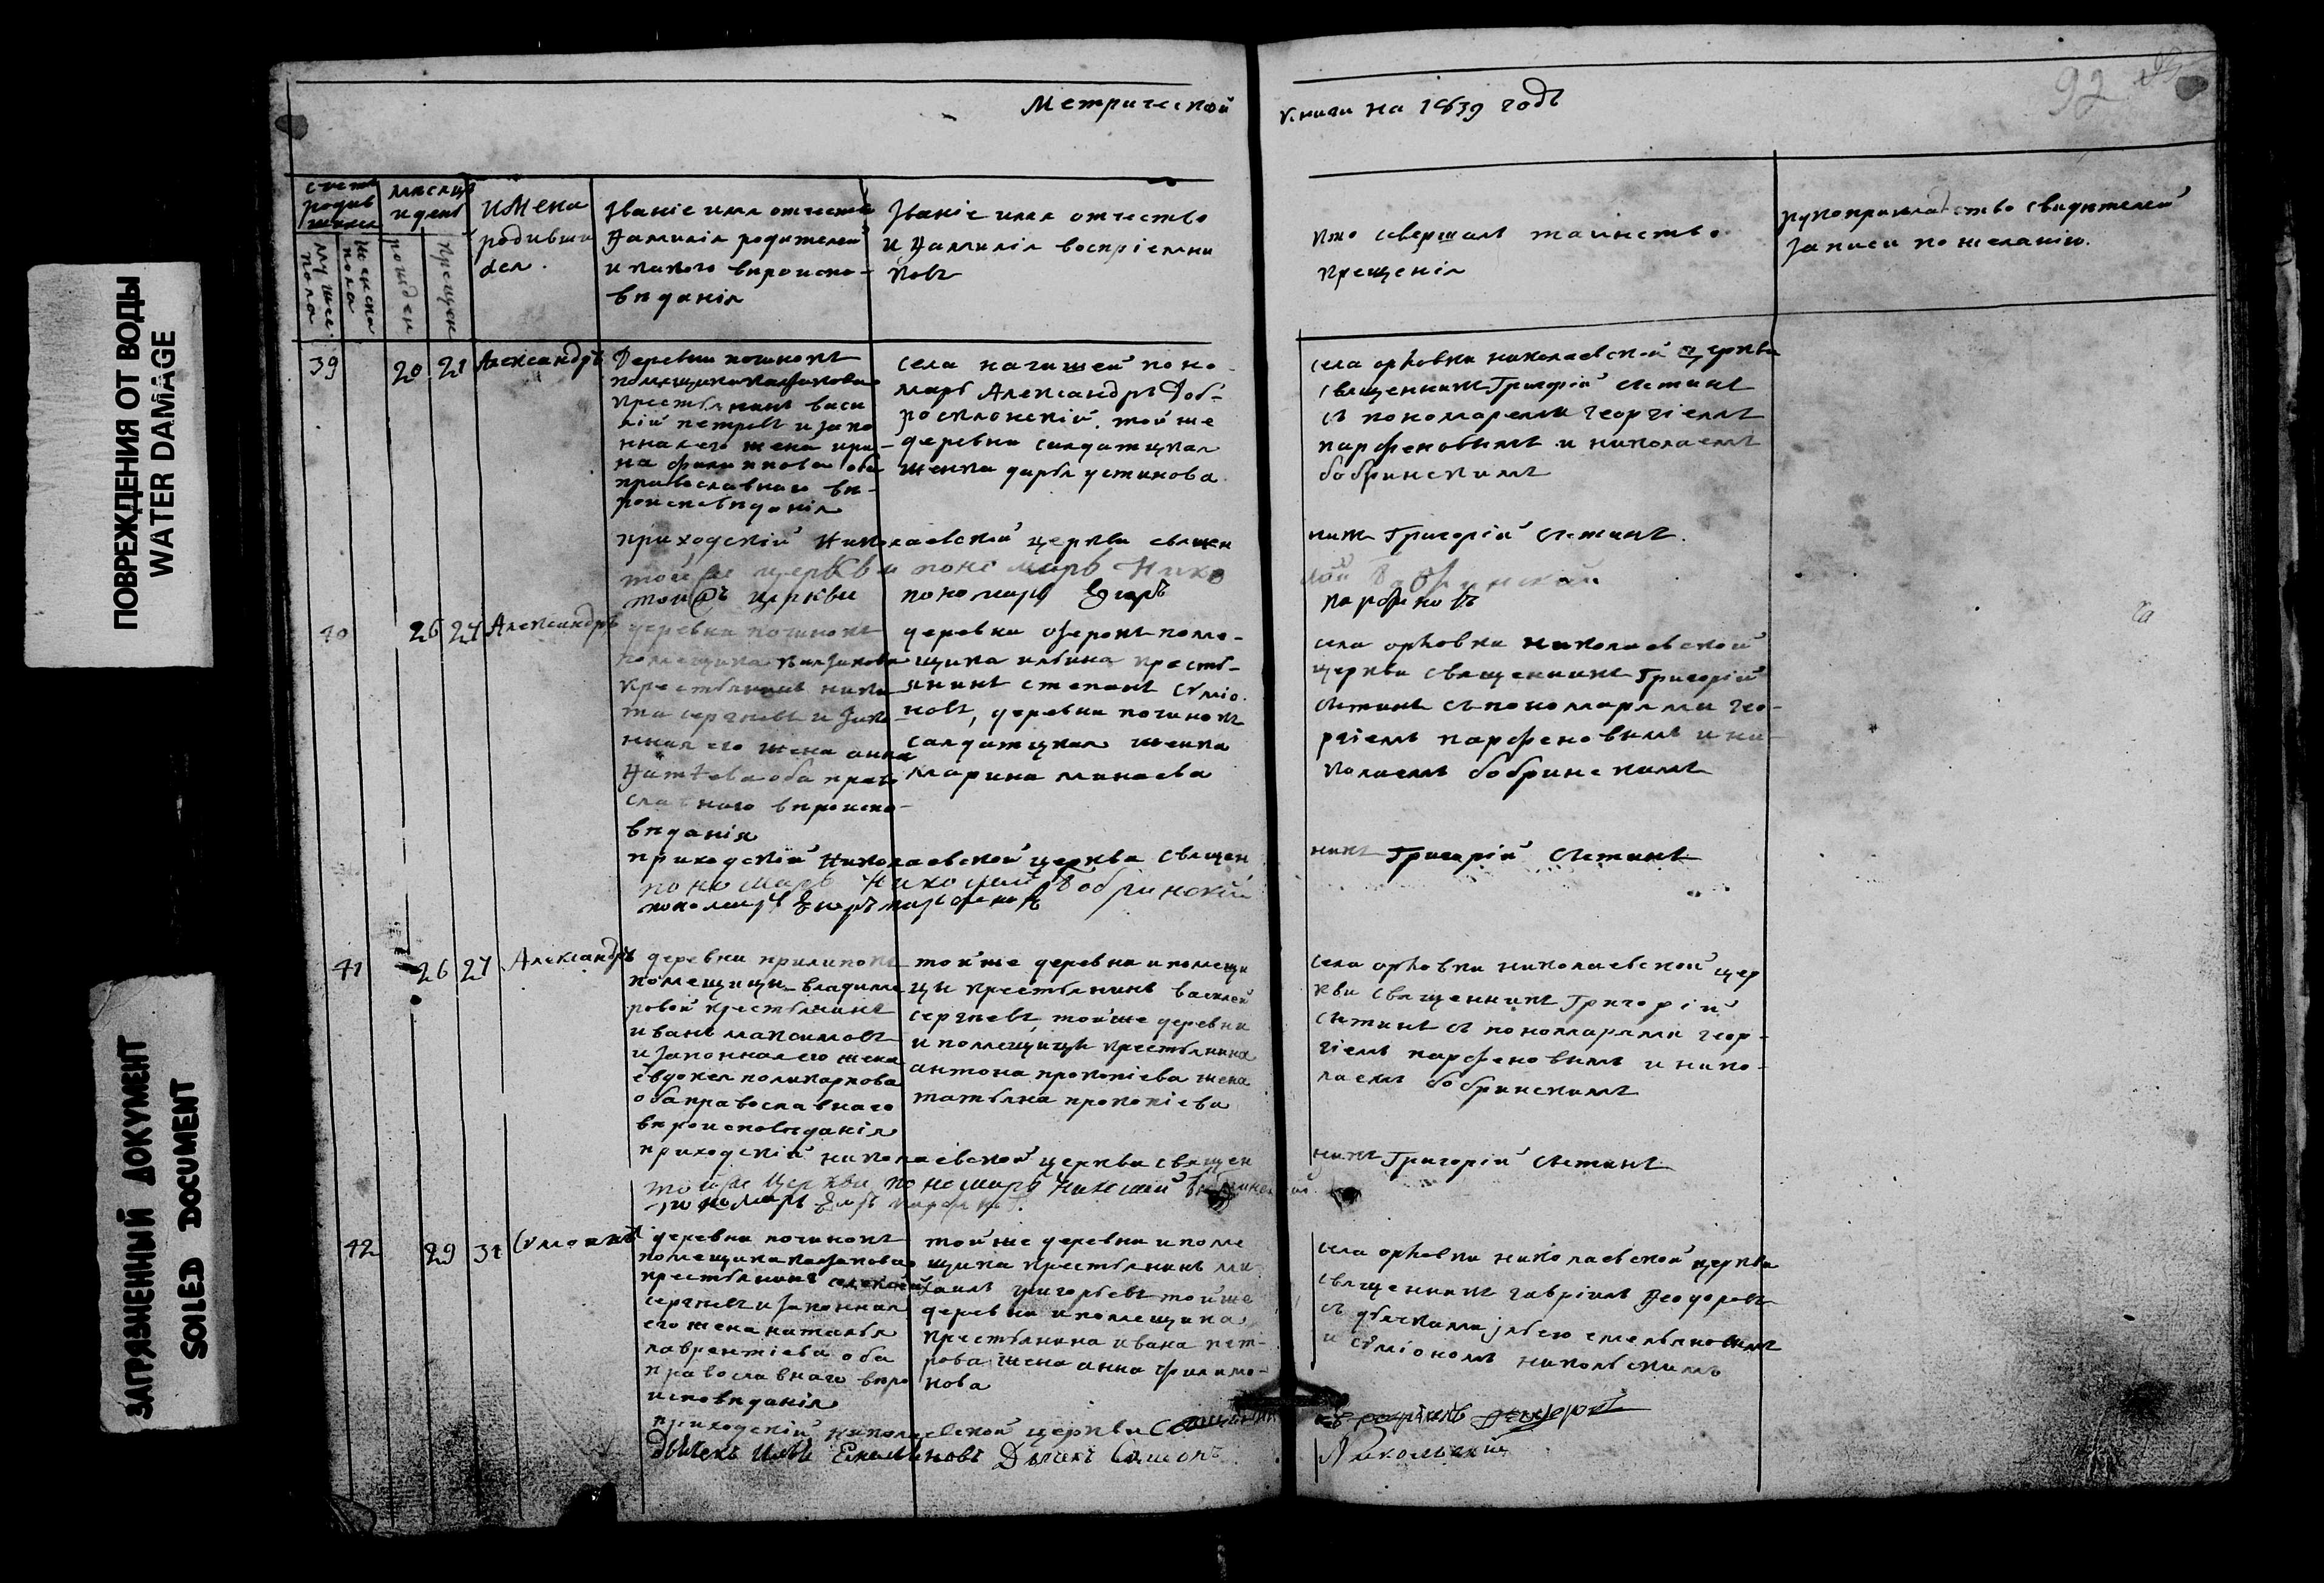 Метрической
книги на 1839 годъ
92
счетъ родившихся
мужеска пола
женска пола
месяцъ и день
рожден
крещен
имена родивших
ся.
Званіе имя отчество
и фамилія родителей
и какого вероиспо-
веданія
Званіе имя отчество
и фамилія воспріемни
ковъ
кто совершалъ таинство
крещенія
рукоприкладство свидетелей
записи по желанію.
39
20 21
Александръ
Деревни починокъ
помещика
крестьянинъ васи
лій петровъ и зако
нная его жена ири-
на филиппова оба
православнаго ве-
роисповеданія
села нагишей поно-
марь Александръ Доб-
росклонскій. той же
деревни салдатцкая
женка дарья устинова
села орловки николаевской церкви
священникъ Григорій Сетинъ
съ пономарями георгіемъ
парфеновымъ и николаемъ
бобринскимъ
приходскій Николаевской церкви священ
никъ Григорій Сетинъ.
той же церкви пономарь Нико
лай Бобринской
той же церкви пономарь Егоръ
парфеновъ
40
26 27
Александръ
деревни починокъ
помещика
крестьянинъ ники
та сергеевъ и зако
нная его жена анна
фатеева оба право
славнаго вероиспо-
веданія
деревни озерокъ поме-
щика ильина кресть-
янинъ степанъ сѵміо
новъ, деревни починокъ
салдатцкая женка
марина минаева
села орловки николаевской
церкви священникъ Григорій
Сетинъ съ пономарями гео-
ргіемъ парфеновымъ и ни-
колаемъ бобринскимъ
приходской Николаевской церкви священ
никъ Григорій Сетинъ
пономарь Николай Бобринскій
пономарь Егоръ парфеновъ
41
26 27
Александръ
деревни прилипокъ
помещицы владими
ровой крестьянинъ
иванъ максимовъ
и законная его жена
евдокея поликарпова
оба православнаго
вероисповеданія
той же деревни и помещи
цы крестьянинъ василей
сергеевъ, той же деревни
и помещицы крестьянина
антона прокопіева жена
татьяна прокопіева
села орловки николаевской цер
кви священникъ Григорій
Сетинъ съ пономарями геор-
гіемъ парфеновымъ и нико-
лаемъ бобринскимъ
приходскій николаевской церкви священ
никъ Григорій Сетинъ
той же церкви пономарь Николай
пономарь Егоръ
42
29 31
деревни починокъ
помещика
крестьянинъ алексей
сергеевъ и законная
его жена наталья
лаврентіева оба
православнаго веро
исповеданія
той же деревни и поме
щика крестьянинъ ми
хаилъ григорьевъ той же
деревни и помещика
крестьянина ивана пет-
рова жена анна филимо-
нова
села орловки николаевской церкви
священникъ гавріилъ Феодоровъ
съ дьячками ильею емельяновымъ
и сѵміономъ никольскимъ
приходскій николаевской церкви
Дьячекъ Илья Емельяновъ Дьячекъ
Никольский
ПОВРЕЖДЕНИЯ ОТ ВОДЫ
WATER DAMAGE
ЗАГРЯЗНЕННЫЙ ДОКУМЕНТ
SOILED DOCUMENT